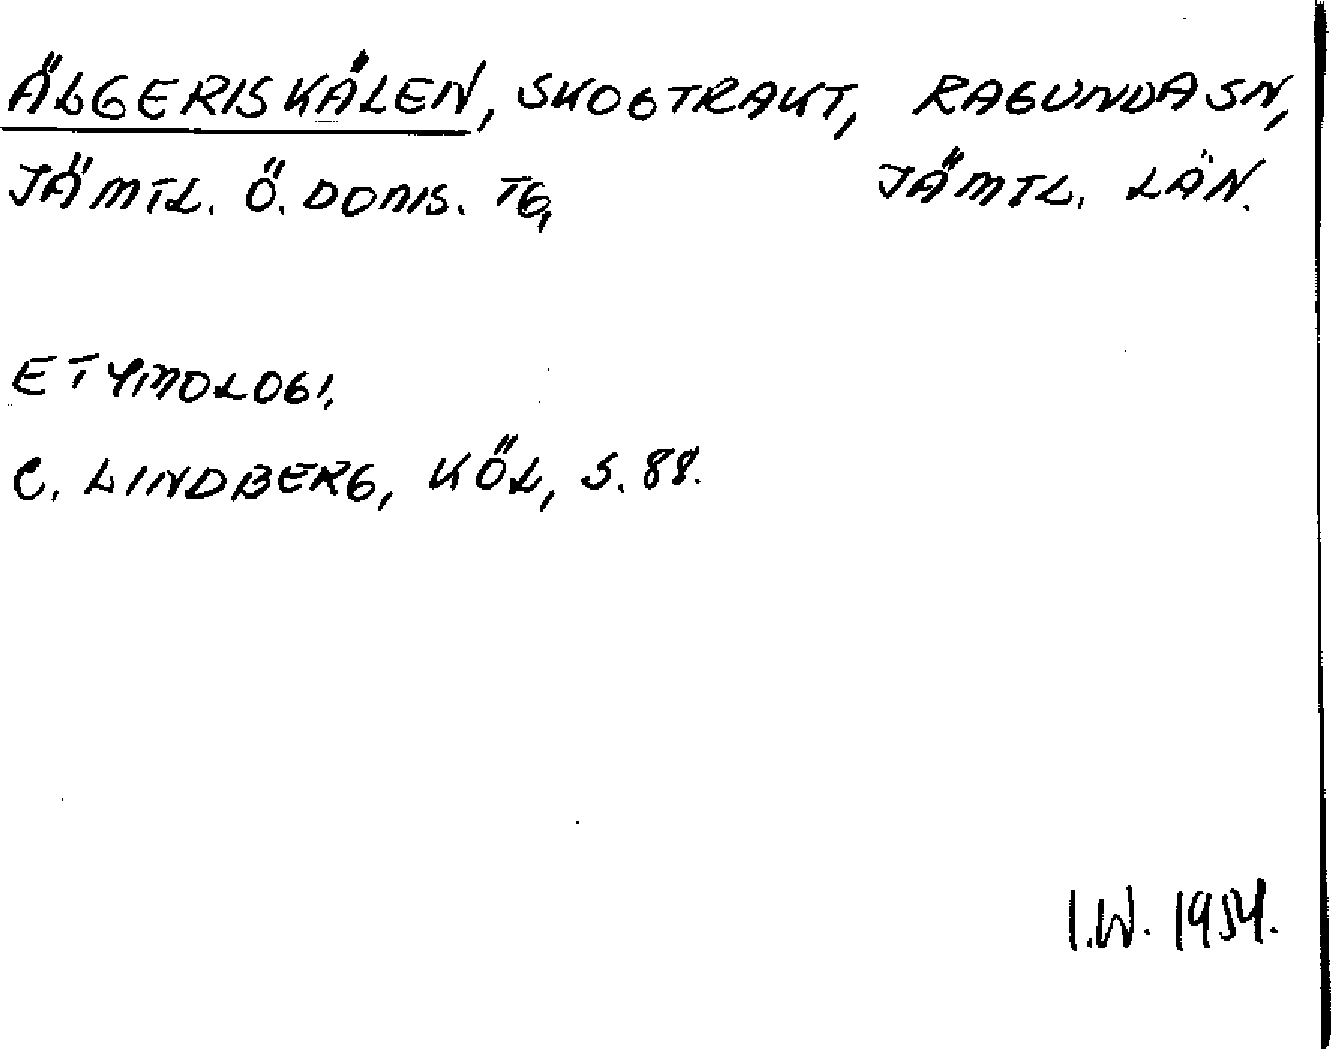 ÄLGERISKÄLEN, SKOGTRAKT, RAGUNDA SN,
JÄMTL. Ö. DOMS. TG, JÄMTL. LÄN.
ETYMOLOGI.
C. LINDBERG, KÖL, S. 88.
I.W. 1954.